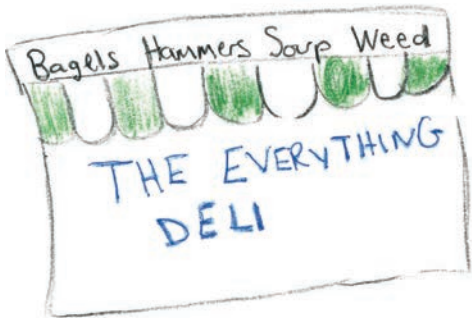 Bagels Hammers Soup Weed
THE EVERYTHING
DELI